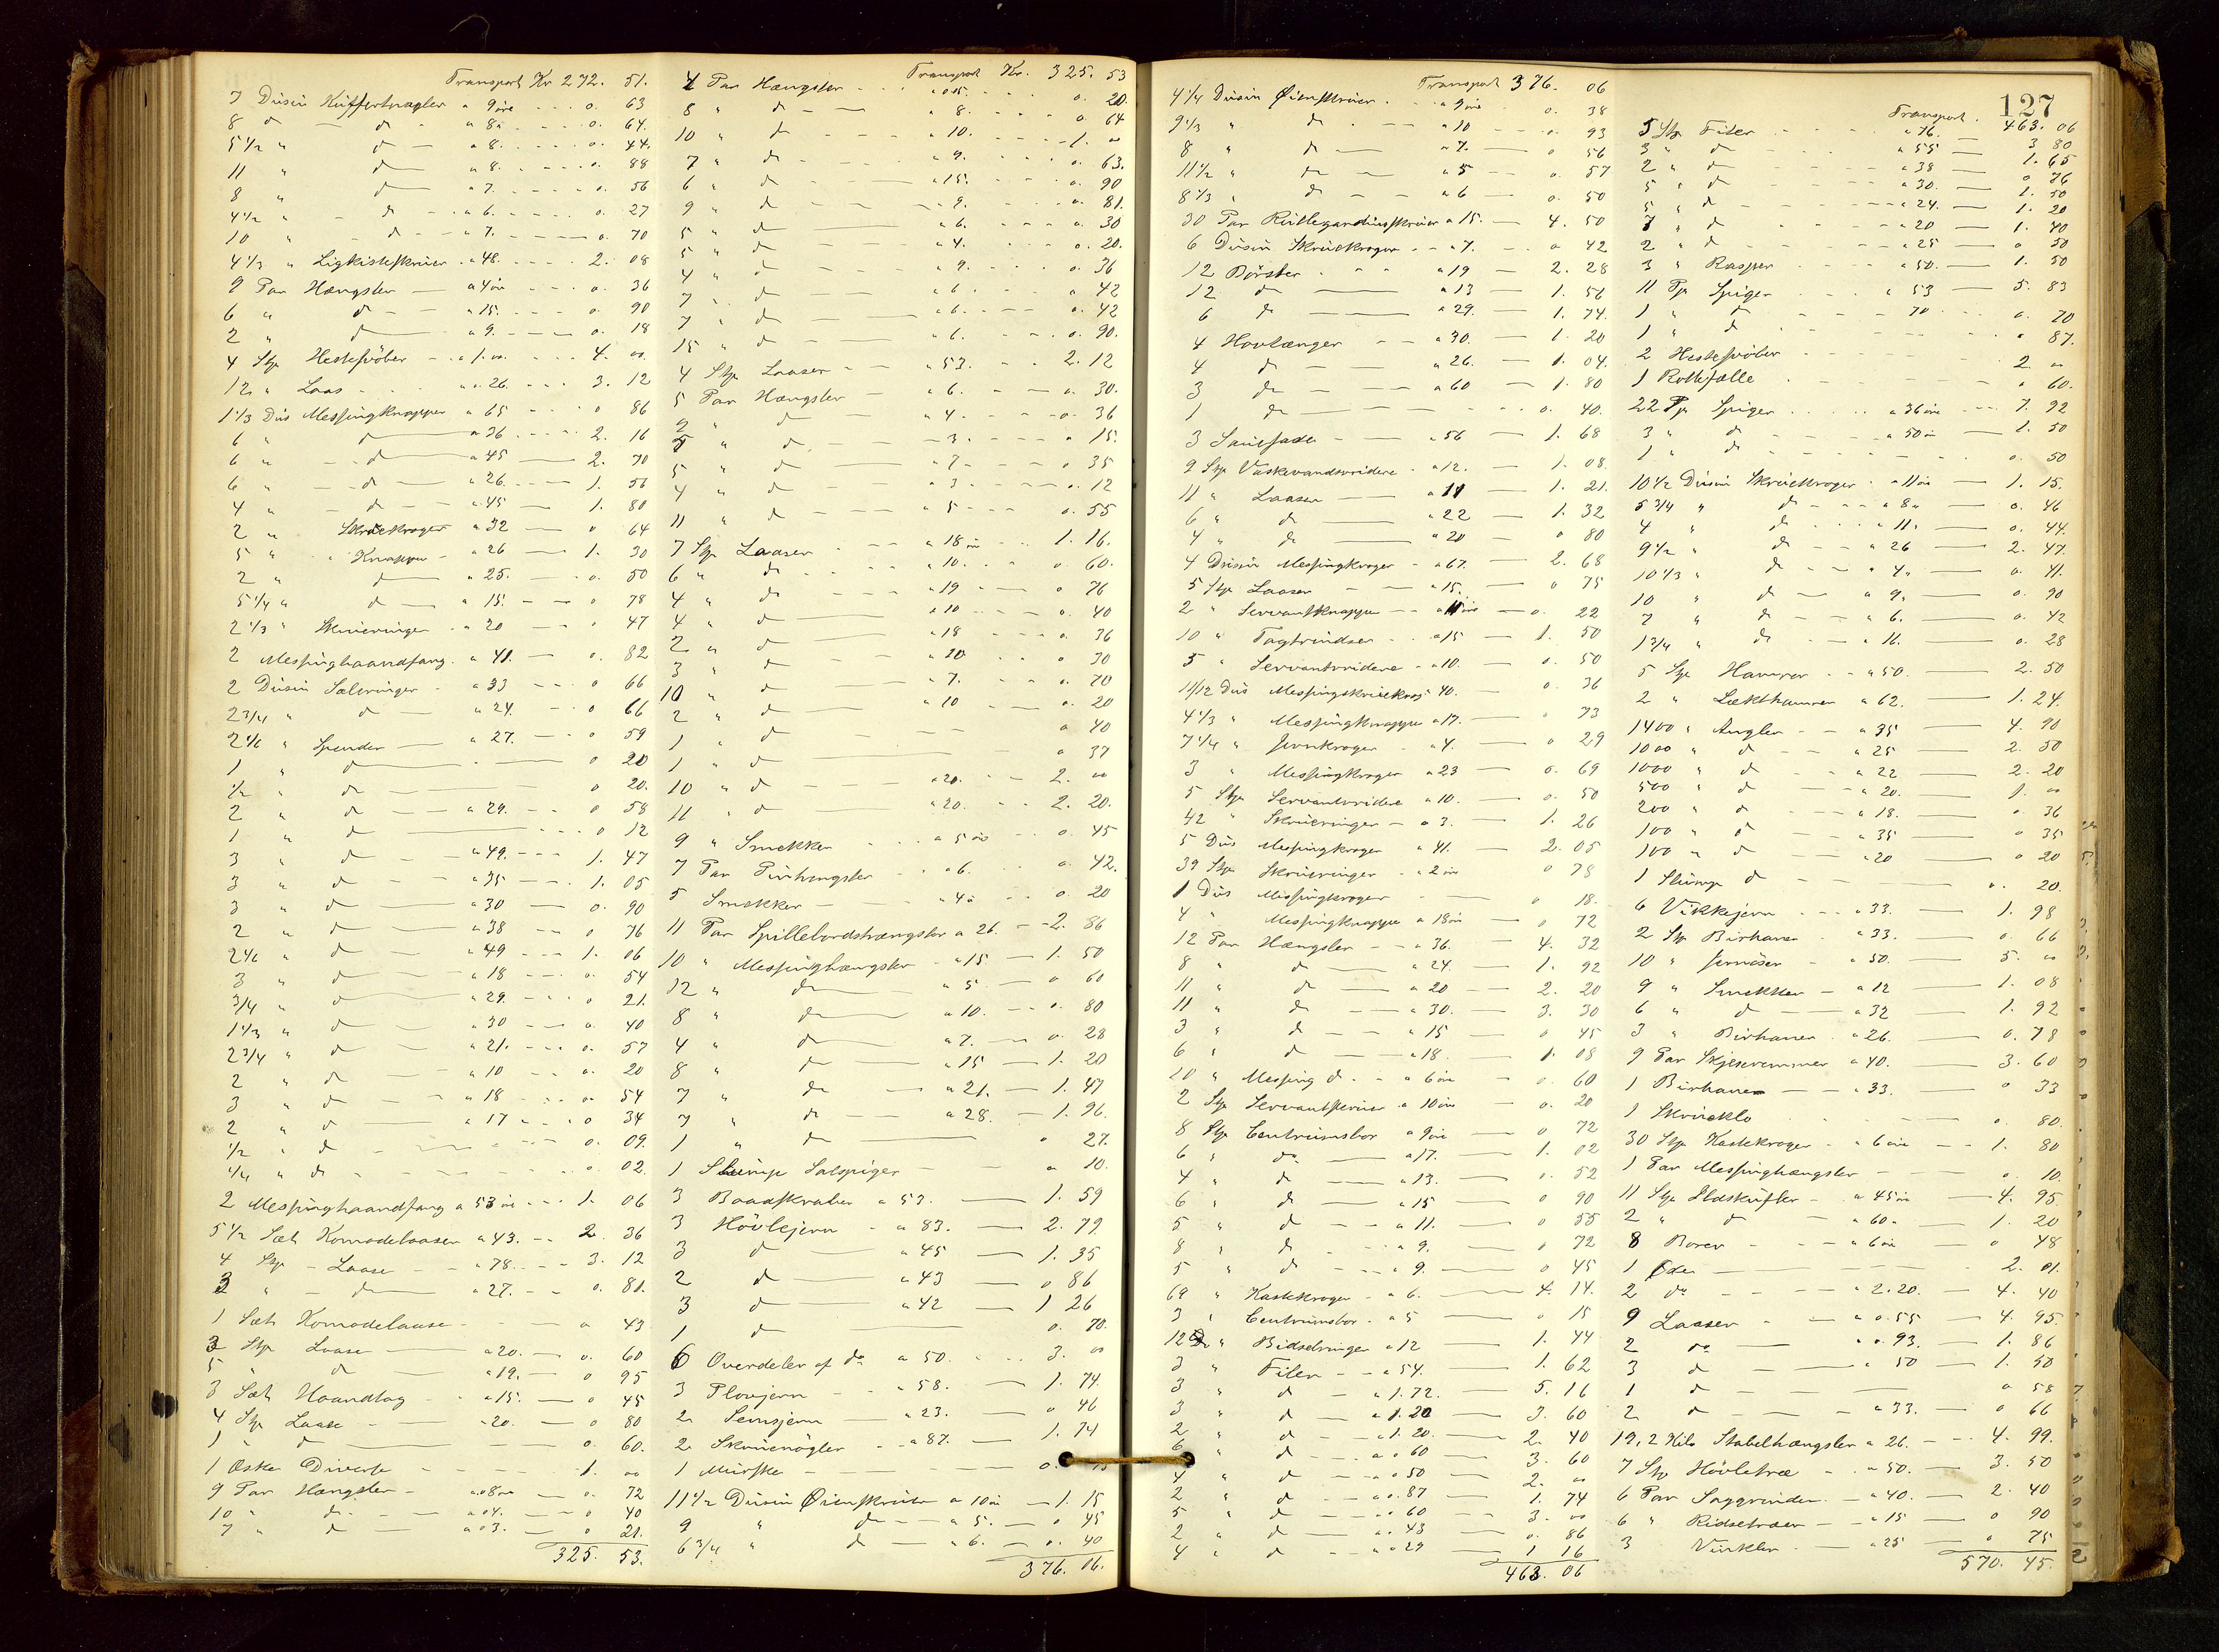 Transport Kr 272. 51.
7 Dusin Kuffertnagler a 9 øre 0. 63
8 d d a 8 " 0. 64.
5 1/2 " d a 8. 0. 44.
11 " d a 8. 0. 88
8 " d a 7. 0. 56
4 1/2 " d a 6. 0. 27
10 " d a 7. 0. 70
4 1/3 " Ligkisteskruer a 48. 2. 08
9 Par Hængsler a 4 øre 0. 36
6 " d a 15. 0. 90
2 " d a 9. 0. 18
4 Stk Hestesvøber a 1.00 4. 00.
12 " Laas a 0.26. 3. 12
1 1/3 Dus Messingknapper a 65 0 86
6 " d a 36 2. 16
6 " d a 45 2. 70
6 " d a 26. 1. 56
4 " d a 45 1. 80
2 " Skruekroger a 32 0 64
5 " Knapper a 26 1. 30
2 " d a 25. 0. 50
5 1/4 " d a 15. 0 78
2 1/3 " Skrueringer a 20 0 47
2 Messinghaandfang a 41. 0. 82
2 Dusin Sælringer a 33 0 66
2 3/4 " d a 24. 0 66
2 1/6 " Spender a 27. 0 59
1 " d 0 20
1/2 " d 0 20.
2 " d a 29. 0 58
1 " d 0 12
3 " d a 49. 1. 47
3 " d a 35 1. 05
3 " d a 30 0. 90
2 " d a 38 0 76
2 1/6 " d a 49 1. 06
3 " d a 18 0. 54
3/4 " d a 29. 0 21.
1 1/3 " d a 30 0. 40
2 3/4 " d a 21. 0. 57
2 " d a 10 0. 20
3 " d a 18 0. 54
2 " d a 17 0 34
1/2 " d 0. 09.
1/4 " d 0. 02.
2 Messinghaandfang a 53 øre 1. 06
5 1/2 Sæt Komodelaaser a 43. 2. 36
4 Stk Laase a 78. 3. 12
3 " d a 27. 0. 81.
1 Sæt Komodelaase 0 43
3 Stk Laase a 20. 0. 60
5 " d a 19. 0 95
3 Sæt Haandtag a 15. 0 45
4 Stk Laase a 20. 0 80
1 " d 0. 60.
1 Æske Diverse 1. 00
9 Par Hængsler a 08 øre 0. 72
10 " d a 04. 0 40
7 " d a 03. 0 21.
325. 53.
Transport Kr. 325. 53
4 Par Hængsler a 05. 0. 20.
8 " d a 8. 0 64
10 " d a 10. 1. 00
7 " d a 9. 0. 63.
6 " d a 15. 0. 90
9 " d a 9. 0. 81.
5 " d a 6. 0. 30
5 " d a 4. 0. 20.
4 " d a 9. 0. 36
7 " d a 6. 0 42
7 " d a 6. 0. 42
15 " d a 6. 0. 90.
4 Stk Laaser a 53. 2. 12
5 Par Hængsler a 6. 0. 30.
9 " d a 4. 0. 36
5 " d 3. 0 15.
5 " d a 7. 0 35
4 " d a 3 0. 12
11 " d a 5 0. 55
7 Stk Laaser a 18 øre 1. 16.
6 " d a 10. 0 60.
4 " d a 19 0 76
4 " d a 10 0. 40
2 " d a 18 0. 36
3 " d a 10 0 30
10 " d a 7. 0. 70
2 " d a 10 0. 20
1 " d 0 40
1 " d 0 37
10 " d a 20. 2. 00
11 " d a 20. 2. 20.
9 " Smekker a 5 øre 0. 45
7 Par Purhengsler a 6. 0. 42.
5 Smekker a 4 " 0. 20
11 Par Spillebordshængsler a 26. 2. 86
10 " Messinghængsler a 15 1. 50
12 " d a 5 0 60
8 " d a 10. 0. 80
4 " d a 7. 0. 28
8 " d a 15 1. 20
7 " d a 21. 1. 47
7 " d a 28. 1. 96.
1 " d 0 27.
1 Slump Salspiger 0 10.
3 Baadskraber a 53. 1. 59
3 Høvlejern a 83. 2. 79.
3 d a 45 1. 35
2 d a 43 0 86
3 d a 42 1 26
1 d 0. 70.
6 Overdeler af do a 50. 3. 00
3 Plovjern a 58. 1. 74.
2 Semsjern a 23. 0 46
2 Skruenøgler a 87. 1. 74
1 Murske 0.
11 1/2 Dusin Øienskruer a 10 øre 1. 15
9 " d a 5. 0 45
6 3/4 " d a 6. 0. 40
376. 06.
Transport 376. 06
4 1/4 Dusin Øienskruer a 9 øre 0. 38
9 1/3 " d a 10 0. 93
8 " d a 7. 0 56
11 1/2 " d a 5 0. 57
8 1/3 " d a 6 0. 50
30 Par Rullegardinskruer a 15. 4. 50
6 Dusin Skruekroger a 7. 0 42
12 Børster a 19 2. 28
12 d a 13 1. 56
6 d a 29. 1. 74.
4 Hovtænger a 30. 1. 20
4 d a 26. 1. 04.
3 d a 60 1. 80
1 d 0. 40.
3 Sauesaxe a 56 1. 68
9 Stk Vaskevandsvridere a 12. 1. 08.
11 " Laaser a 11 1. 21.
6 " d a 22 1. 32
4 " d a 20 0 80
4 Dusin Messingkroger a 67. 2. 68
5 Stk Laaser a 15. 0 75
2 " Servantknapper a 11 øre 0. 22
10 " Tagtrindser a 15 1. 50
5 " Servantvridere a 10. 0. 50
11/12 Dus Messingskruekrog a 40. 0. 36
4 1/3 " Messingknapper a 17. 0 73
7 1/4 " Jernkroger a 4. 0 29
3 " Messingkroger a 23 0. 69
5 Stk Servantvridere a 10. 0. 50
42 " Skrueringer a 3. 1. 26
5 Dus Messingkroger a 41. 2. 05
39 Stk Skrueringer a 2 øre 0 78
1 Dus Messingkroger 0 18.
4 " Messingknapper a 18 øre 0 72
12 Par Hængsler a 36. 4. 32
8 " d a 24. 1. 92
11 " d a 20 2. 20
11 " d a 30. 3. 30
3 " d a 15 0 45
6 " d a 18. 1. 08
10 " Messing d. a 6 øre 0. 60
2 Stk Servantskruer a 10 øre 0. 20
8 Stk Centrumsbor a 9 øre 0 72
6 " do a 17. 1. 02
4 " d a 13. 0. 52
6 " d a 15 0 90
5 " d a 11. 0 55
8 " d a 9. 0 72
5 " d a 9. 0 45
69 " Kastekroger a 6. 4. 14.
3 " Centrumsbor a 5 0 15
12 " Bidselringer a 12 1. 44
3 " Filer a 54. 1. 62
3 " d a 1.72. 5. 16
3 " d a 1.20 3. 60
2 " d a 1.20. 2. 40
6 " d a 0 60 3. 60
4 " d a 0 50 2. 00
2 " d a 0.87 1. 74
5 " d a 0 60 3. 00
2 " d a 0 43 0. 86
4 " d a 0 29 1 16
463. 06
127
Transport. 463. 06
5 Stk Filer a 76. 3 80
3 " d a 55 1. 65
2 " d a 38 0 76
5 " d a 30. 1. 50
5 " d a 24. 1. 20
7 " d a 20 1. 40
2 " d a 25 0 50
3 " Rasper a 50. 1. 50
11 Pk Spiger a 53 5. 83
1 " d 70 0. 70
1 " d 0 87.
2 Hestesvøber 2. 00
1 Rottefælle 0 60.
22 Pk Spiger a 36 øre 7. 92
3 " d a 50 øre 1. 50
1 d 0. 50
10 1/2 Dusin Skruekroger a 11 øre 1. 15.
5 3/4 " d a 8 " 0. 46
4 " d a 11 " 0. 44.
9 1/2 " d a 26 2. 47.
10 1/3 " d a 4 " 0. 41.
10 " d a 9 " 0. 90
7 " d a 6. 0. 42
1 3/4 " d a 16. 0. 28
5 Stk Hamrer a 50. 2. 50
2 " Lækthamrer a 62. 1. 24.
1400 " Angler a 35 4. 90
1000 " d a 25 2. 50
1000 " d a 22 2. 20
500 " d a 20. 1. 00
200 " d a 18. 0 36
100 " d a 35 0 35
100 " d a 20 0 20
1 Slump d 0. 20.
6 Vikkejern a 33. 1. 98
2 Stk Birhaner a 33. 0. 66
10 " Jernøser a 50. 5. 00
9 " Smekker a 12 1. 08
6 " d a 32 1. 92
3 " Birhaner a 26. 0. 78
9 Par Skjeseremmer a 40. 3. 60
1 Birhane a 33. 0 33
1 Skrueklo 0. 80.
30 Stk Kastekroger a 6 øre 1. 80
1 Par Messinghængsler 0. 10.
11 Stk Ildskufler a 45 øre 4. 95
2 " d a 60 " 1. 20
8 Borer a 6 øre 0 48
1 Øxe 2. 01.
2 do a 2.20. 4. 40
9 Laaser a 0.55 4. 95
2 do a 0.93. 1. 86
3 d a 50 1. 50
1 d 0 58
2 d a 33. 0 66
19,2 Kilo Stabelhængsler a 26. 4. 99.
7 Stk Høvletræ a 50. 3. 50
6 Par Saggrinder a 40. 2. 40
6 " Ridsetræer a 15 0 90
3 Vinkler a 25 0 75
570. 45.